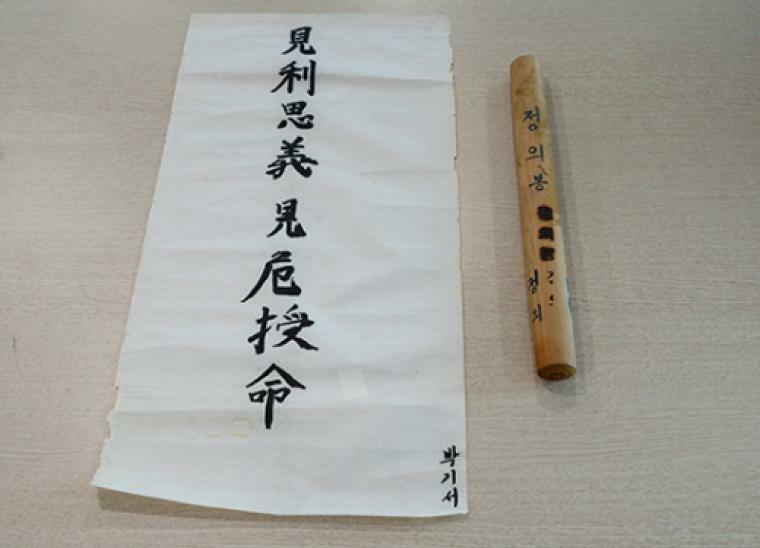 見利思義 見危授命
박기서
정의봉
정의